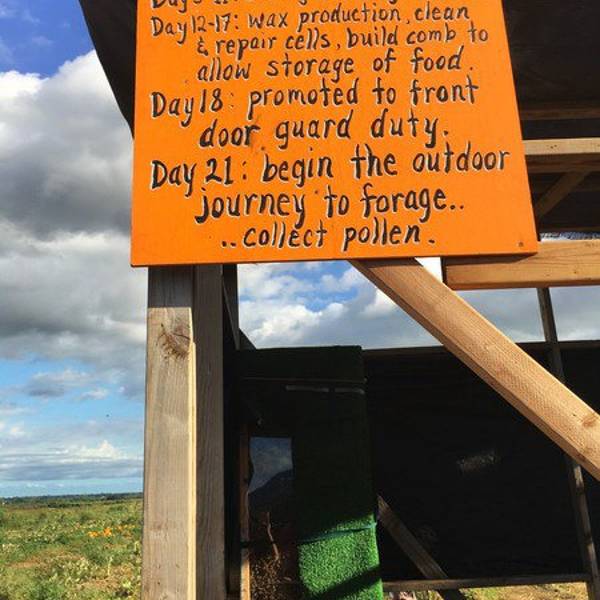 Day 12-17: wax production, clean
& repair cells, build comb to
allow storage of food.
Day 18: promoted to front
door guard duty.
Day 21: begin the outdoor
journey to forage..
..collect pollen.